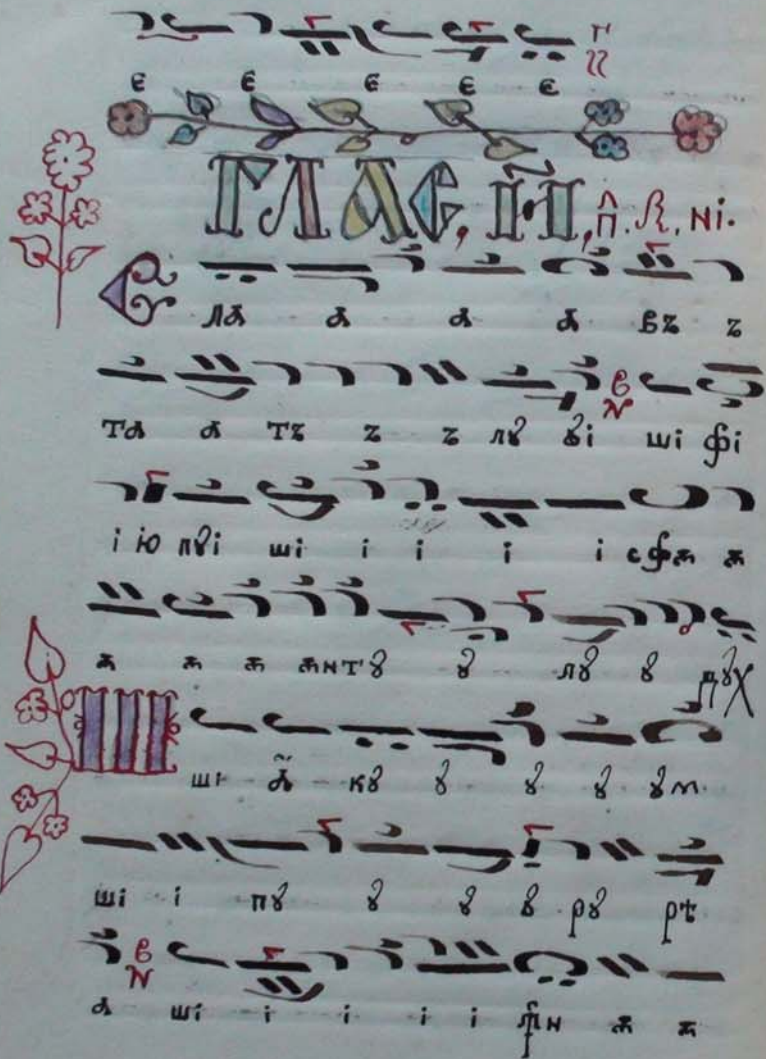 є є є є є
ГЛАС, Н҃, п. ні.
С ла а а а въ ъ
та а тъ ъ ъ лꙋ ꙋі ші фі
і ю лꙋі ші і і і і сфѫ ѫ
ѫ ѫ ѫ ѫнтꙋ ꙋ лꙋ ꙋ дꙋх
Ш ші а кꙋ ꙋ ꙋ ꙋ ꙋм
ші і пꙋ ꙋ ꙋ ꙋ рꙋ рѣ
а ші і і і і ꙟн ѫ ѫ